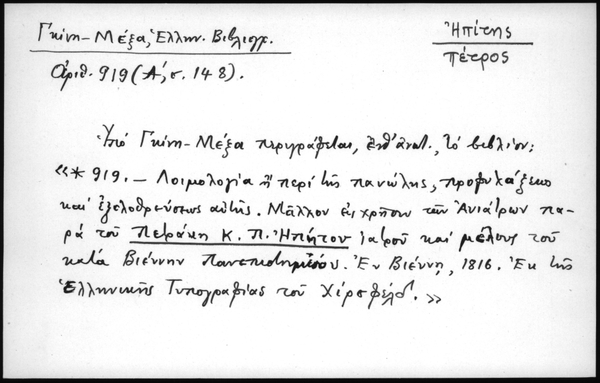 Γκίνη-Μέξα, Ἑλλην. Βιβλιογρ.
Ἠπίτης
Πέτρος
ἀριθ. 919 (Α΄, σ. 148).
Ὑπό Γκίνη-Μέξα περιγράφεται, ἐνθ' ἀνωτ., τό βιβλίον:
«* 919. — Λοιμολογία ἤ περί τῆς πανώλης, προφυλάξεως
καί ἐξολοθρεύσεως αὐτῆς. Μᾶλλον εἰς χρῆσιν τῶν Ἀνιάτρων πα-
ρά τοῦ Πετράκη Κ. Π. Ἠπήτου ἰατροῦ καί μέλους τοῦ
κατά Βιέννην Πανεπιστημίου. Ἐν Βιέννῃ, 1816. Ἐκ τῆς
Ἑλληνικῆς Τυπογραφίας τοῦ Χίρσφελδ. »